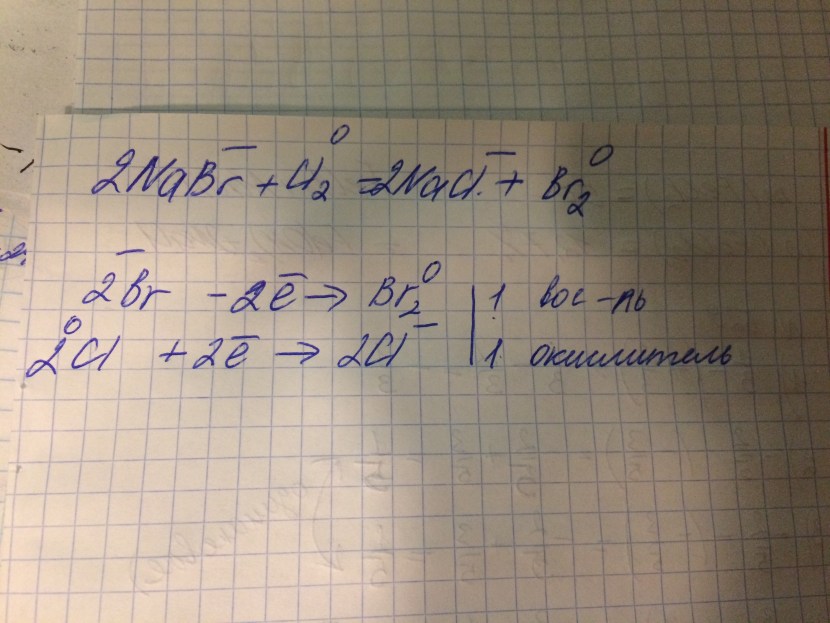 2NaBr⁻ + Cl₂⁰ = 2NaCl⁻ + Br₂⁰
2Br⁻ - 2e⁻ → Br₂⁰ | 1 вос-ль
2Cl⁰ + 2e⁻ → 2Cl⁻ | 1 окислитель